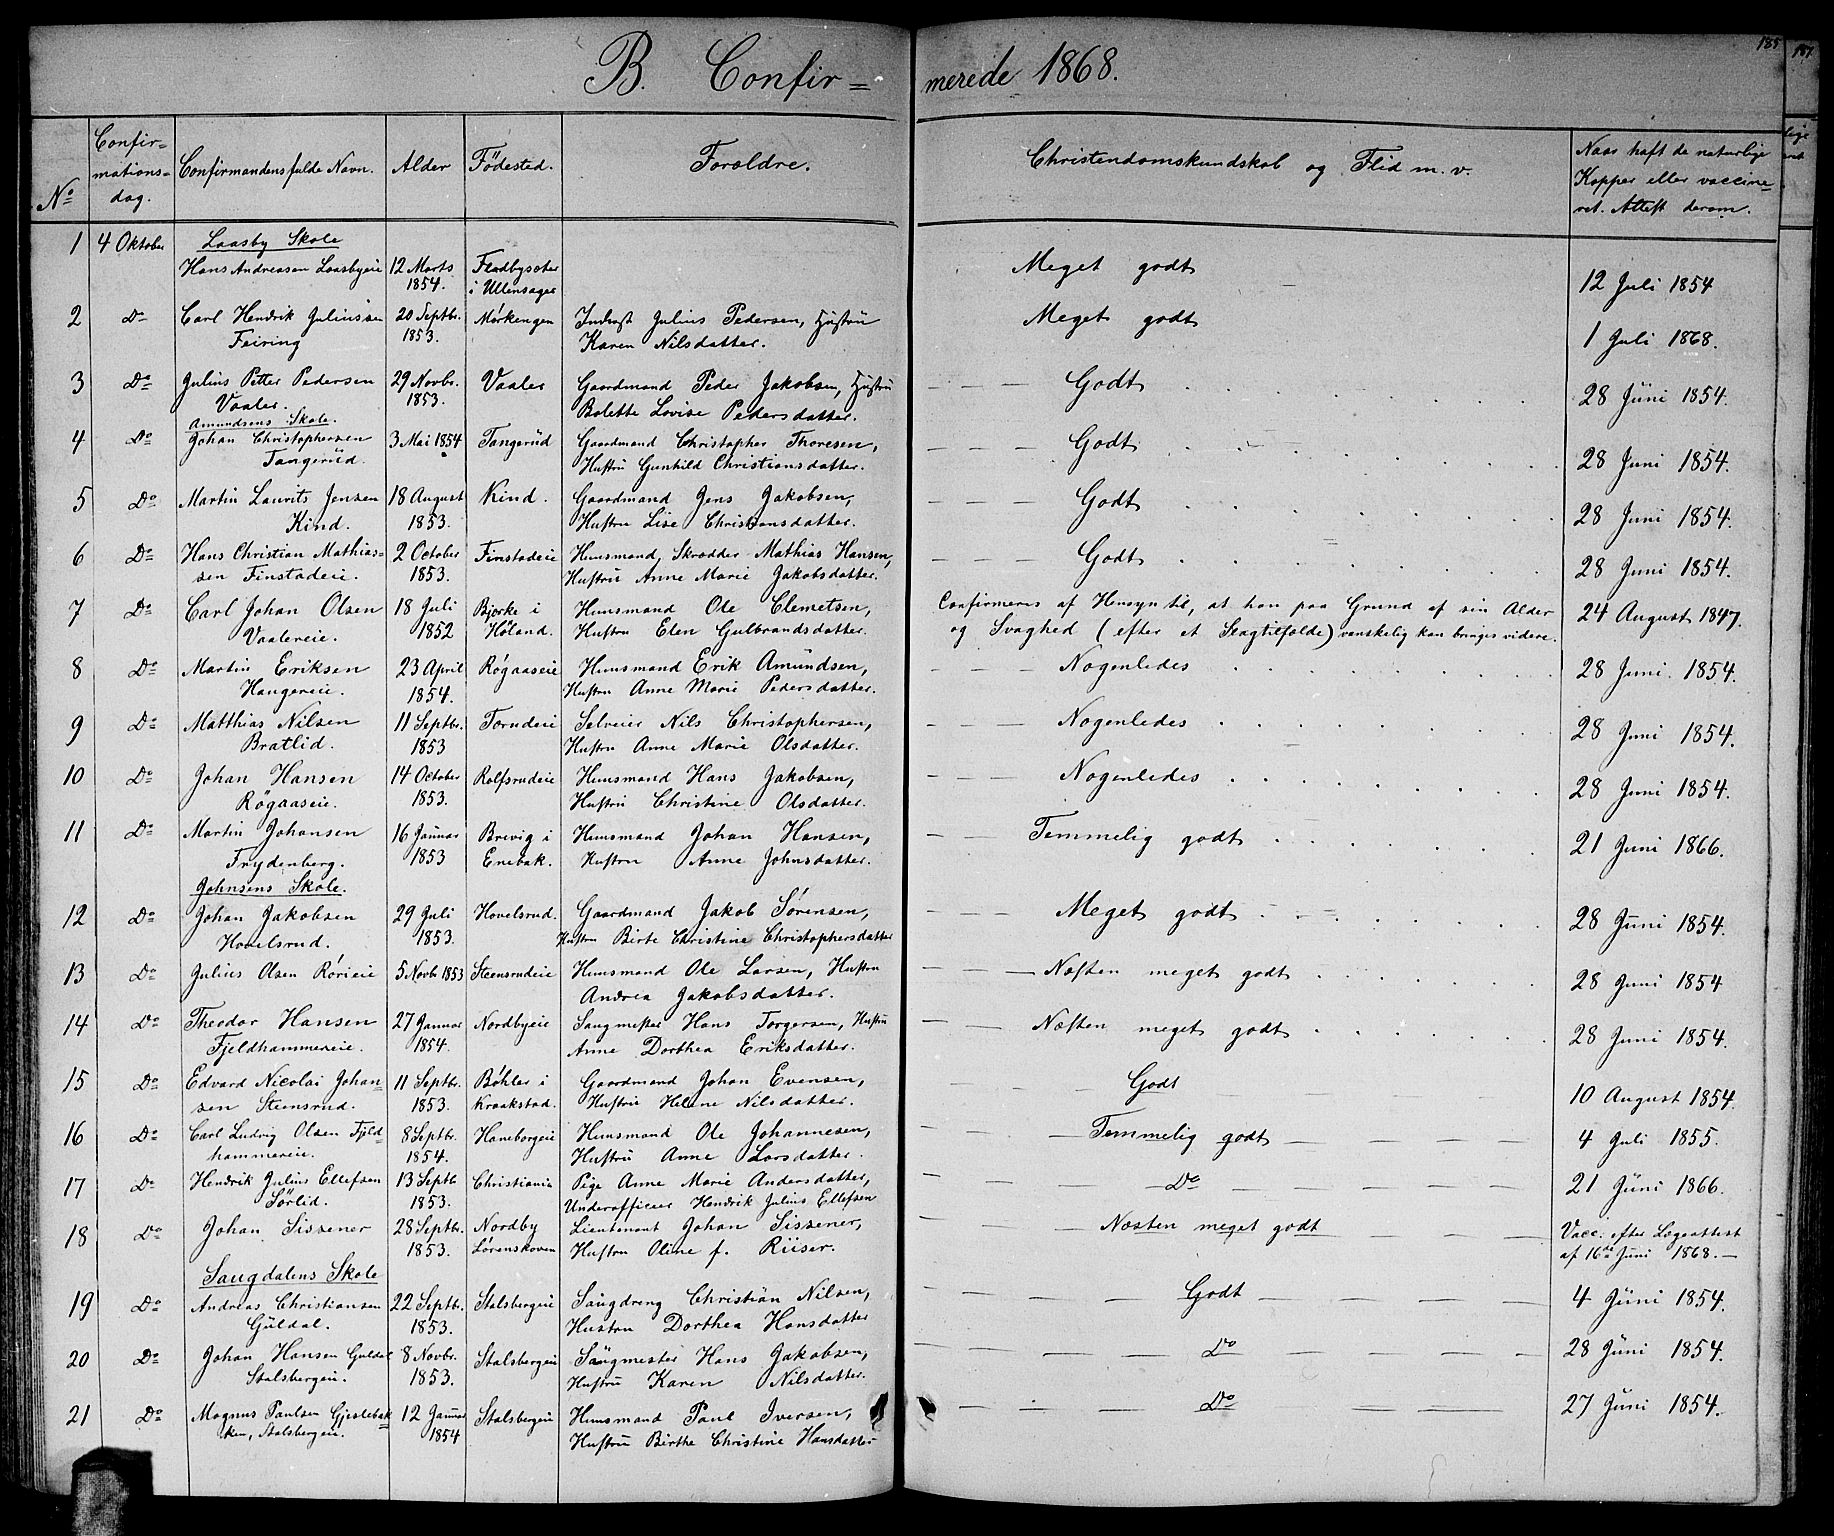 B. Confir=merede 1868.
185
187
No
Confir=
mations=
dag.
Confirmandens fulde Navn.
Alder
Födested.
Forældre.
Christendomskundskab og Flid m. v.
Naar haft de naturlige
Kopper eller vaccine=
ret. Attest derom.
Laasby Skole
1 4 Oktober Hans Andreasen Laasbyeie 12 Marts 1854. Fladbyseter i Ullensager Meget godt 12 Juli 1854
2 Do Carl Hendrik Juliussen Feiring 20 Septbr. 1853. Mørkengen Inderst Julius Pedersen, Hustru Karen Nilsdatter. Meget godt 1 Juli 1868.
3 Do Julius Petter Pedersen Vaaler. 29 Novbr. 1853. Vaaler Gaardmand Peder Jakobsen, Hustru Bolette Lovise Pedersdatter. Godt 28 Juni 1854.
Amundsens Skole.
4 Do Johan Christophersen Tangerud. 3 Mai 1854 Tangerud Gaardmand Christopher Thoresen, Hustru Gunhild Christiansdatter. Godt 28 Juni 1854.
5 Do Martin Laurits Jensen Kind. 18 August 1853. Kind. Gaardmand Jens Jakobsen, Hustru Lise Christiansdatter. Godt 28 Juni 1854.
6 Do Hans Christian Mathias=sen Finstadeie. 2 October 1853. Finstadeie Huusmand, Skrædder Mathias Hansen, Hustru Anne Marie Jakobsdatter. Godt 28 Juni 1854.
7 Do Carl Johan Olsen Vaalereie. 18 Juli 1852 Bjerke i Høland. Huusmand Ole Clemetsen, Hustru Elen Gulbrandsdatter. Confirmeres af Hensyn til, at han paa Grund af sin Alder og Svaghed (efter et Slagtilfælde) vanskelig kan bringes videre. 24 August 1847.
8 Do Martin Eriksen Haugereie. 23 April 1854. Røgaaseie Huusmand Erik Amundsen, Hustru Anne Marie Pedersdatter. Nogenledes 28 Juni 1854.
9 Do Matthias Nilsen Bratlid. 11 Septbr. 1853 Torudeie Selveier Nils Christophersen, Hustru Anne Marie Olsdatter. Nogenledes 28 Juni 1854.
10 Do Johan Hansen Røgaaseie. 14 October 1853. Rolfsrudeie Huusmand Hans Jakobsen, Hustru Christine Olsdatter. Nogenledes 28 Juni 1854.
11 Do Martin Johansen Frydenberg. 16 Januar 1853 Brevig i Enebak. Huusmand Johan Hansen, Hustru Anne Johnsdatter. Temmelig godt 21 Juni 1866.
Johnsens Skole.
12 Do Johan Jakobsen Hovelsrud. 29 Juli 1853. Hovelsrud. Gaardmand Jakob Sørensen, Hustru Birte Christine Christophersdatter Meget godt 28 Juni 1854.
13 Do Julius Olsen Rørieie 5 Novb 1853 Steensrudeie Huusmand Ole Larsen, Hustru Andrea Jakobsdatter. Næsten meget godt 28 Juni 1854
14 Do Theodor Hansen Fjeldhammereie. 27 Januar 1854. Nordbyeie Saugmester Hans Torgersen, Hustru Anne Dorthea Eriksdatter. Næsten meget godt 28 Juni 1854.
15 Do Edvard Nicolai Johan=sen Steensrud. 11 Septbr. 1853. Bøhler i Kraakstad. Gaardmand Johan Evensen, Hustru Helene Nilsdatter. Godt 10 August 1854.
16 Do Carl Ludvig Olsen Fjeld=hammereie. 8 Septbr. 1854. Haneborgeie Huusmand Ole Johannesen, Hustru Anne Larsdatter. Temmelig godt 4 Juli 1855.
17 Do Hendrik Julius Ellefsen Sørlid. 13 Septb 1853. Christiania Pige Anne Marie Andersdatter, Underofficeer Hendrik Julius Ellefsen Do 21 Juni 1866.
18 Do Johan Sissener 28 Septbr. 1853. Nordby Lørenskoven Lieutenant Johan Sissener, Hustru Oline f. Riiser. Næsten meget godt Vacc. efter Lægeattest af 16de Juni 1868.
Saugdalens Skole
19 Do Andreas Christiansen Guldal. 22 Septbr. 1853. Stalsbergeie Saugdreng Christian Nilsen, Hustru Dorthea Hansdatter Godt 4 Juni 1854.
20 Do Johan Hansen Guldal Stalsbergeie. 8 Novbr. 1853. Stalsbergeie Saugmester Hans Jakobsen, Hustru Karen Nilsdatter. Do 28 Juni 1854.
21 Do Magnus Paulsen Gjeslebak=ken, Stalsbergeie. 12 Januar 1854 Stalsbergeie Huusmand Paul Iversen, Hustru Birthe Christine Hansdatter Do 27 Juni 1854.